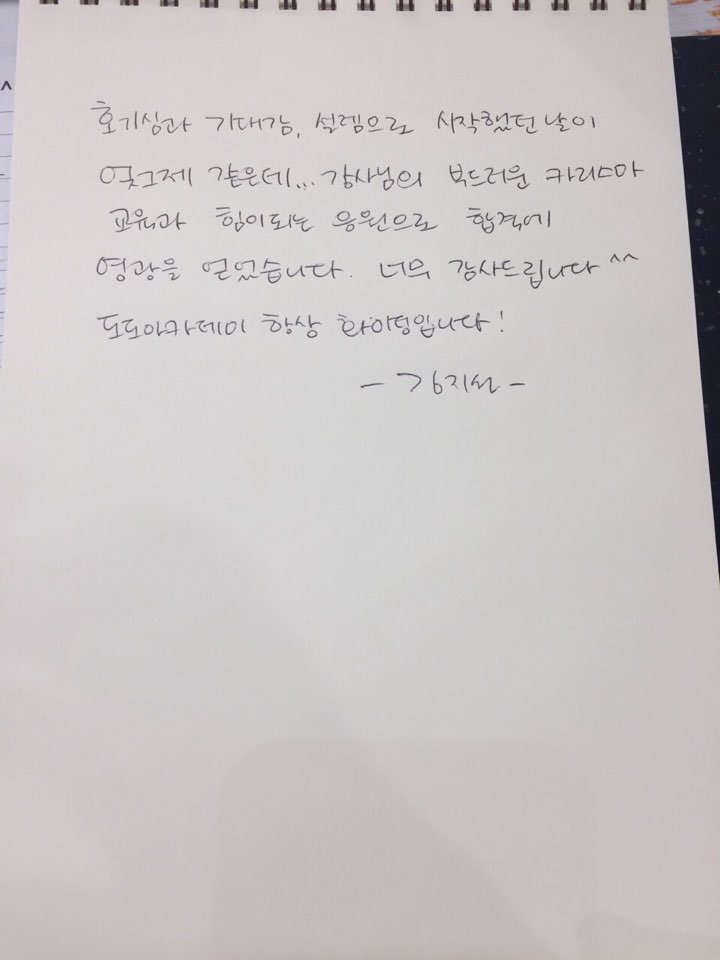 호기심과 기대감, 설렘으로 시작했던 날이
엊그제 같은데... 강사님의 부드러운 카리스마
교육과 힘이되는 응원으로 합격에
영광을 얻었습니다. 너무 감사드립니다 ^^
도도아카데미 항상 화이팅입니다!